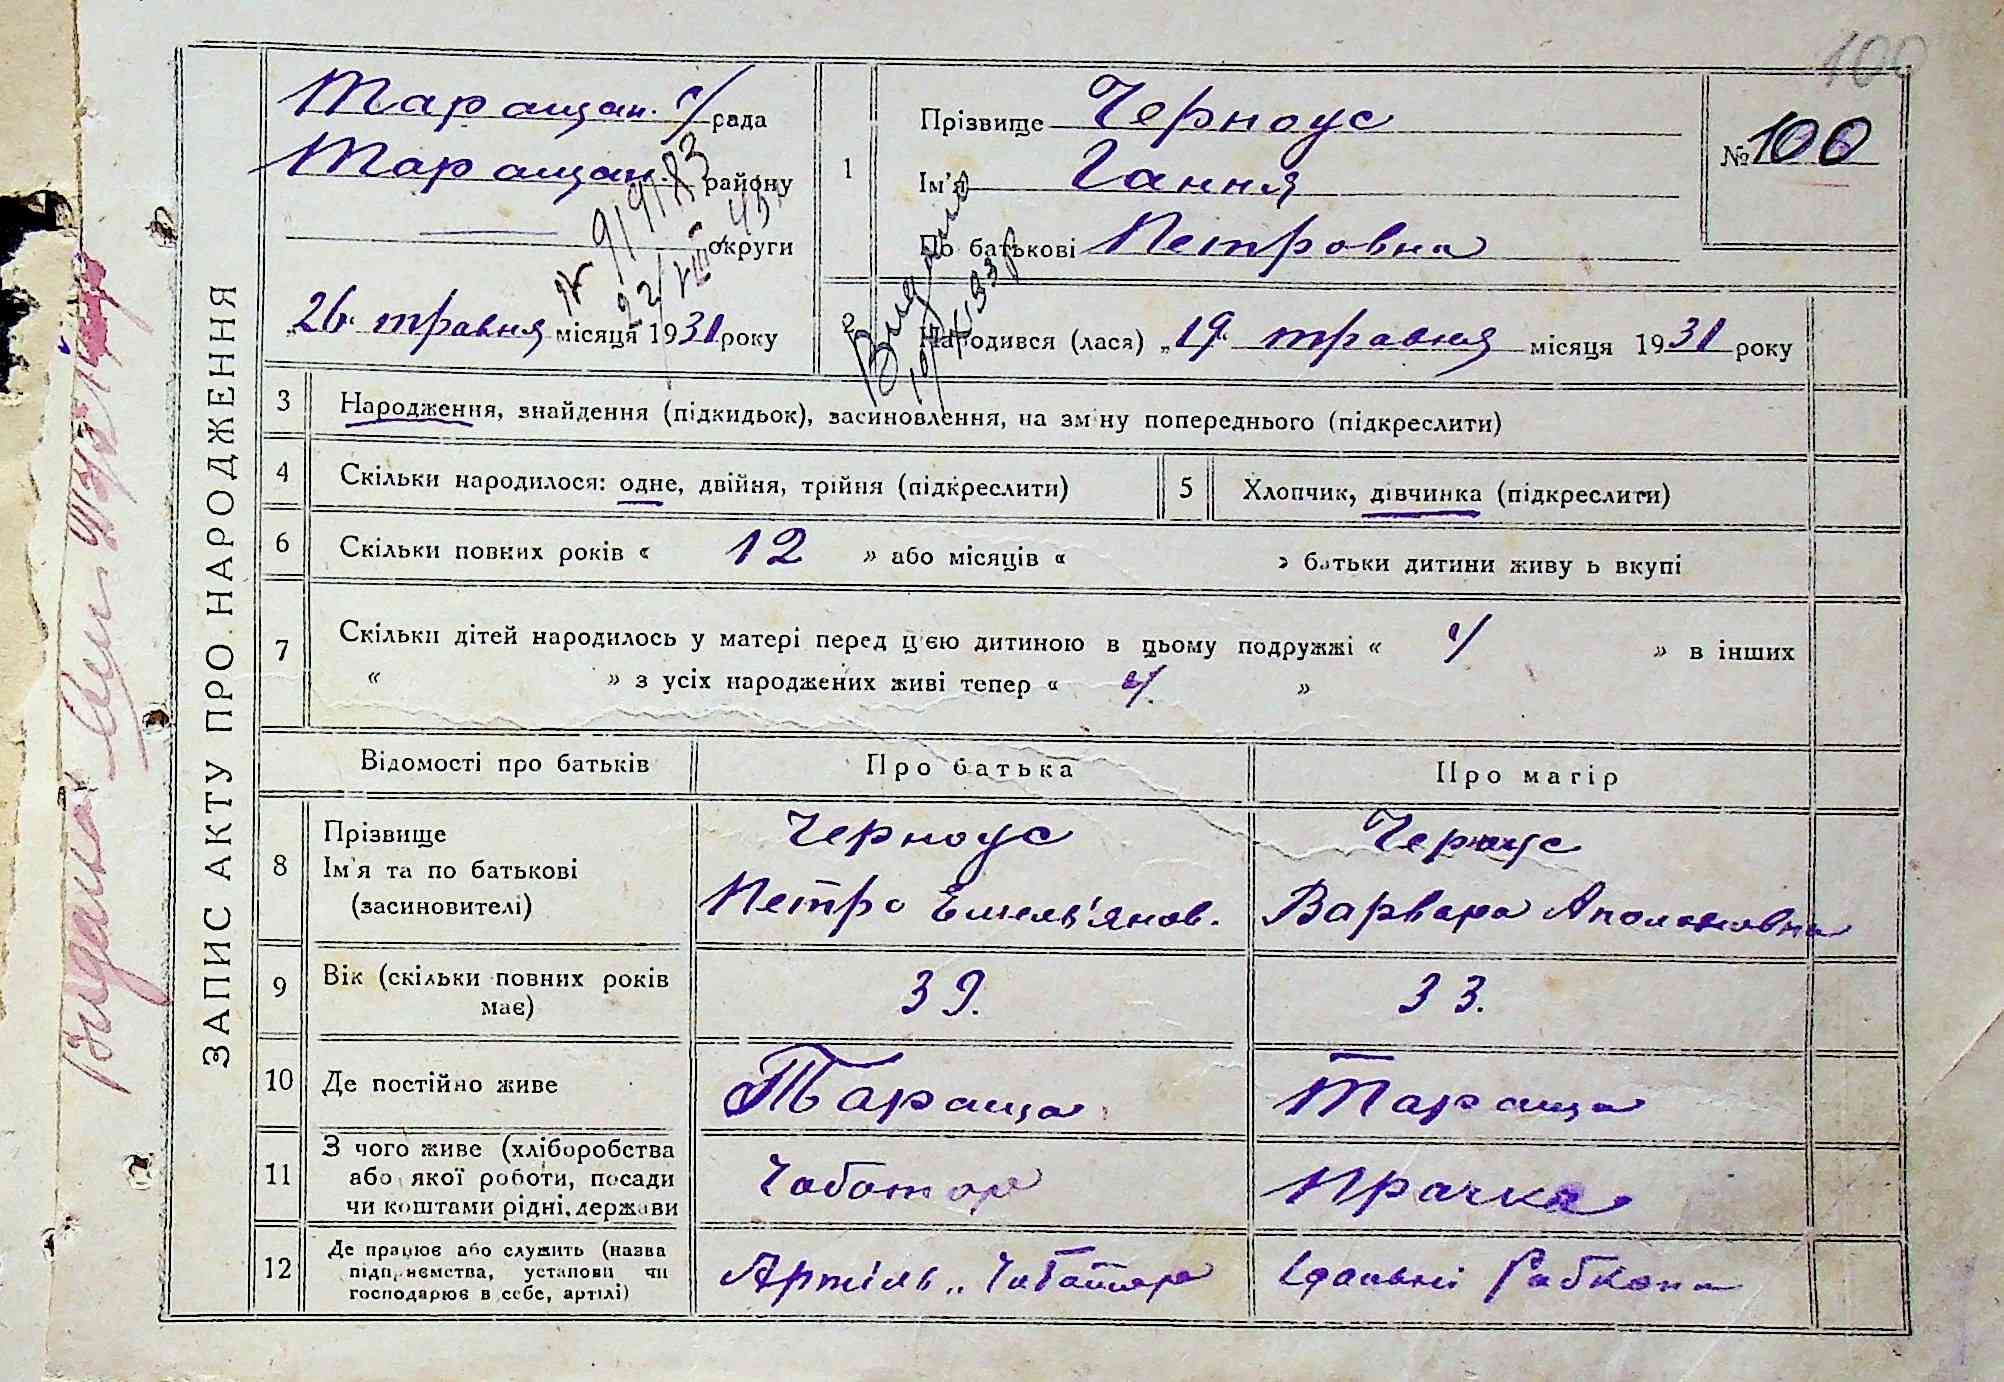 100
ЗАПИС АКТУ ПРО НАРОДЖЕННЯ
Таращан. с/рада
Таращан. району
округи
№ 91918
"26" травня місяця 1931 року
1
Прізвище Черноус
Ім'я Гання
По батькові Петровна
№ 100
2
Народився (лася) "19" травня місяця 1931 року
3 Народження, знайдення (підкидьок), засиновлення, на зміну попереднього (підкреслити)
4 Скільки народилося: одне, двійня, трійня (підкреслити)
5 Хлопчик, дівчинка (підкреслити)
6 Скільки повних років « 12 » або місяців « » батьки дитини живуть вкупі
7 Скільки дітей народилось у матері перед цією дитиною в цьому подружжі « 4 » в інших
« » з усіх народжених живі тепер « 4. »
Відомості про батьків Про батька Про матір
8 Прізвище
Ім'я та по батькові
(засиновителі)
Черноус
Петро Емель'янов.
Черноус
Варвара Аполоновна
9 Вік (скільки повних років
має)
39. 33.
10 Де постійно живе Тараща Тараща
11 З чого живе (хліборобства
або якої роботи, посади
чи коштами рідні, держави
Чоботар Прачка
12 Де працює або служить (назва
підприємства, установи чи
господарює в себе, артілі)
Артіль „Чоботар Їдальні Рабкопа